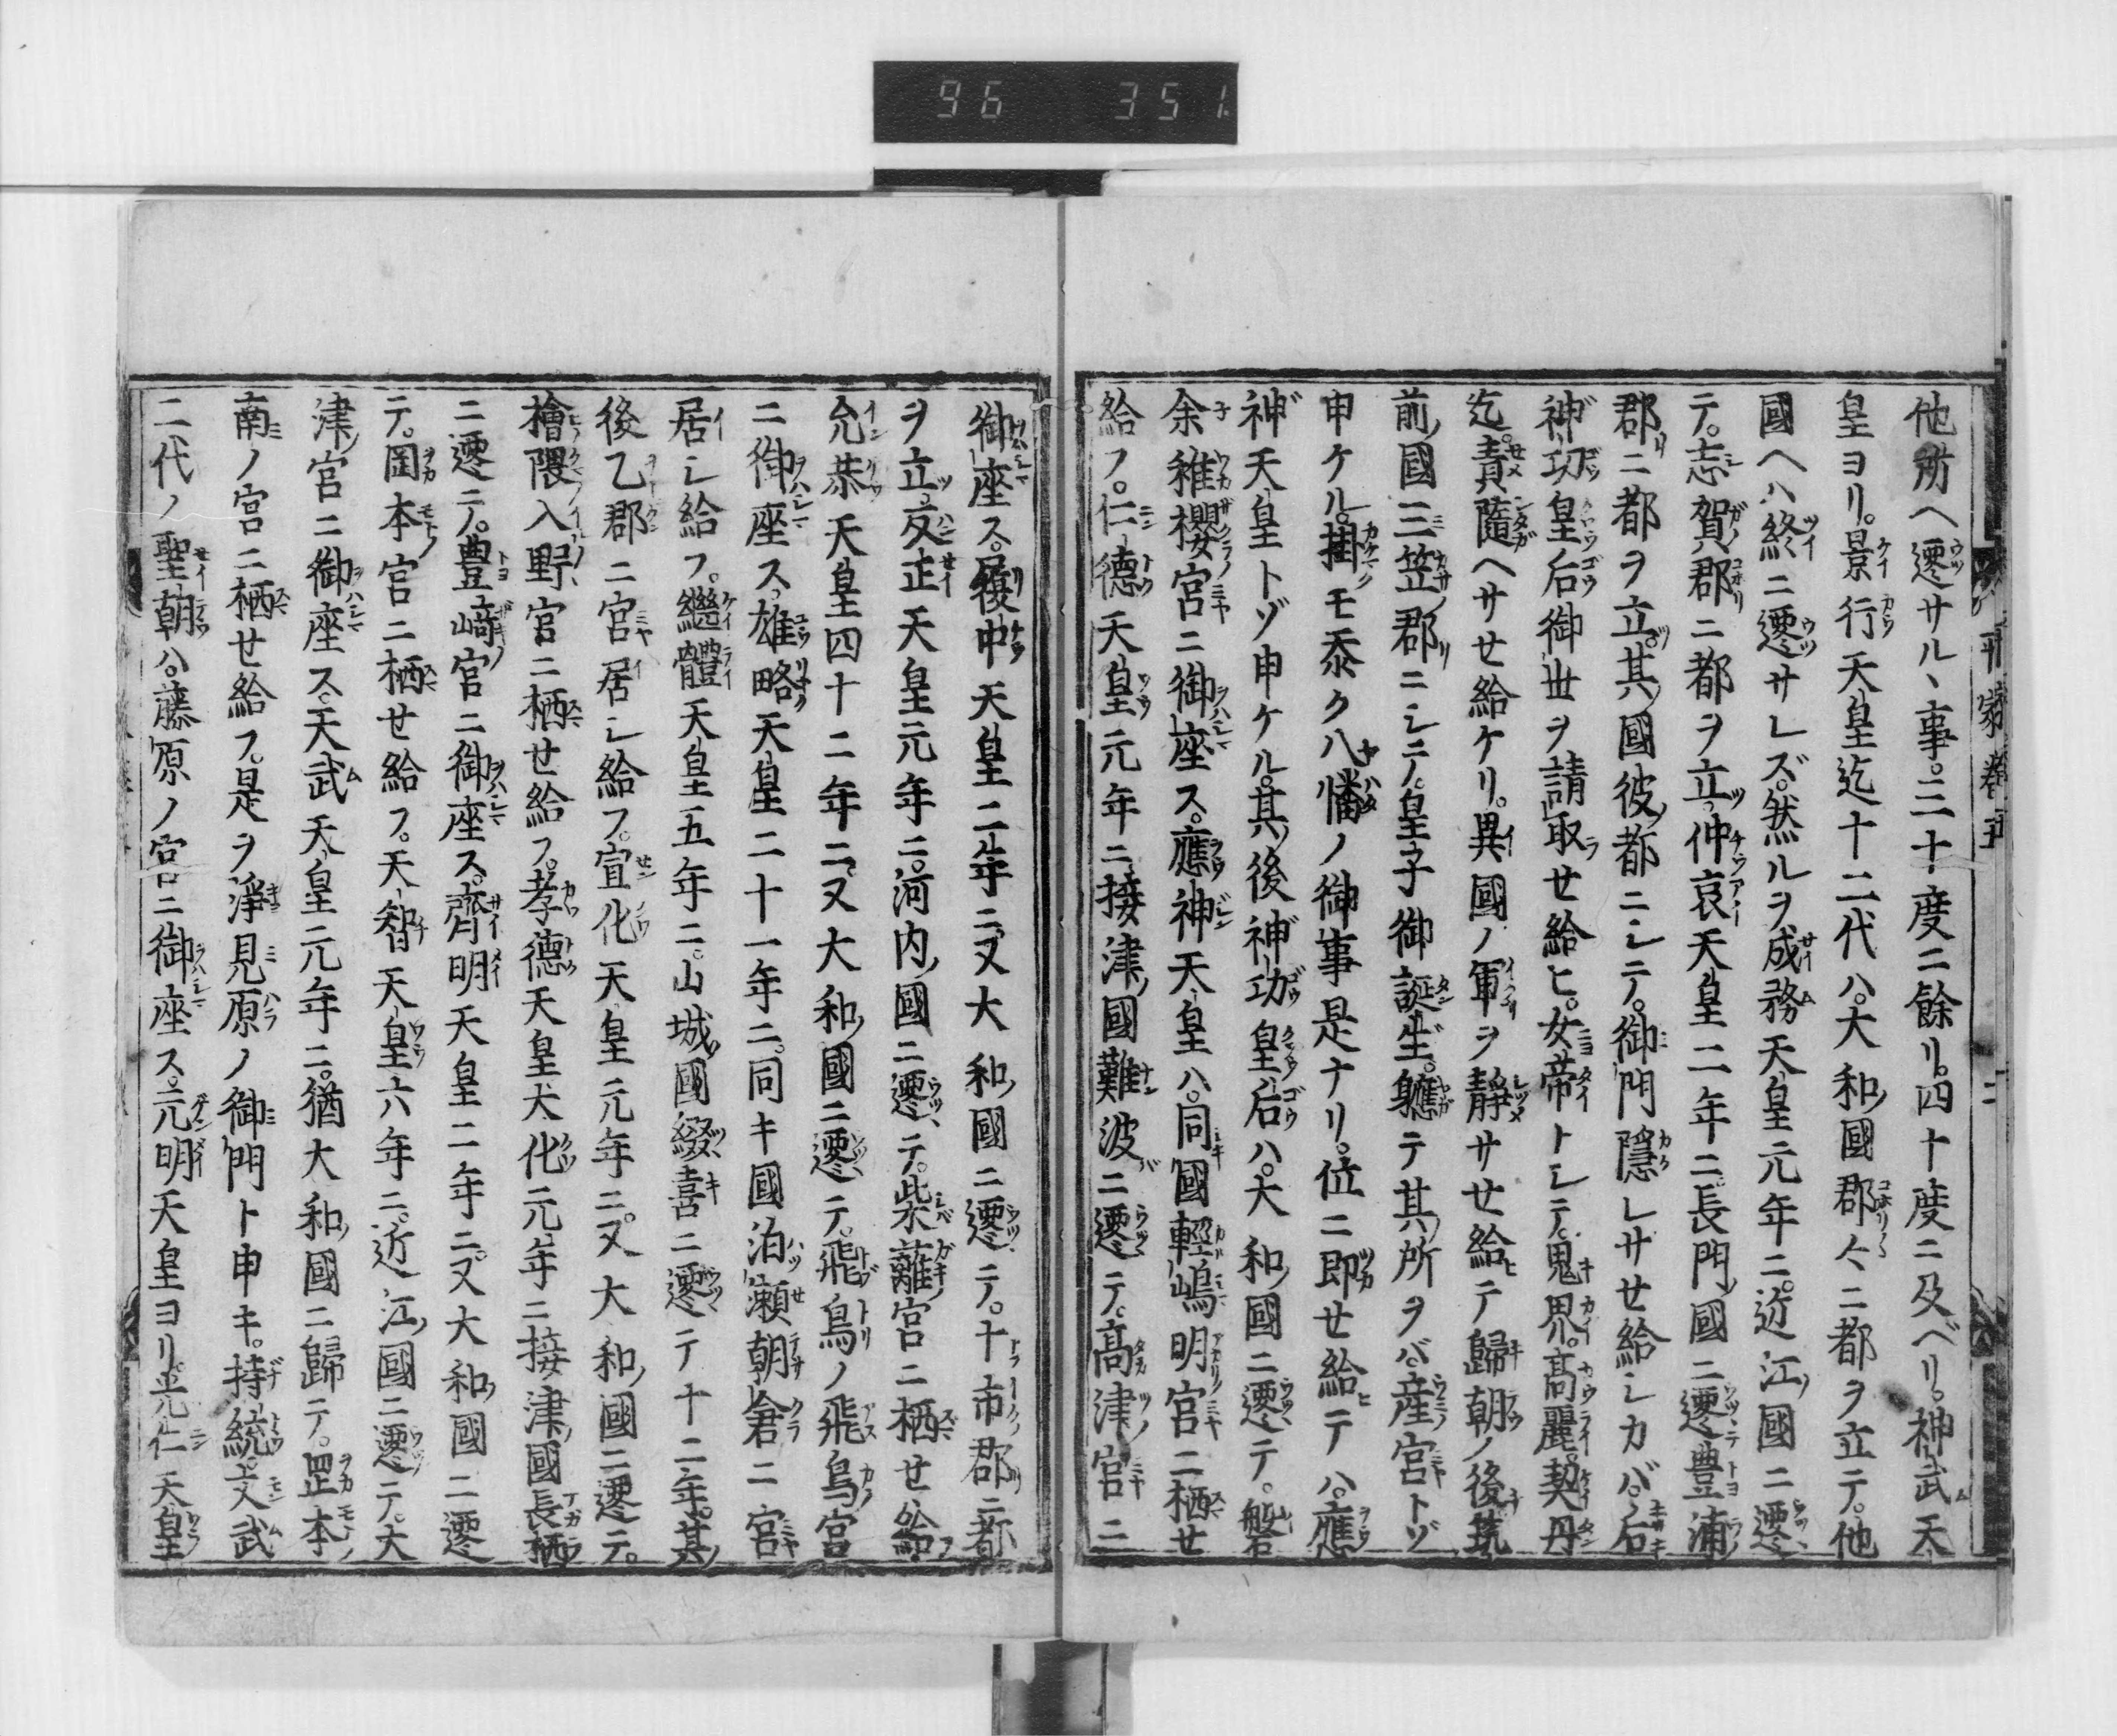 96 351
平家巻五 二
他所ヘ遷サルヽ事。三十度ニ餘リ。四十度ニ及ベリ。神武天
皇ヨリ。景行天皇迄十二代ハ。大和國郡々ニ都ヲ立テ。他
國ヘハ終ニ遷サレズ。然ルヲ成務天皇元年ニ。近江國ニ遷
テ。志賀郡ニ都ヲ立。仲哀天皇二年ニ。長門國ニ遷豊浦
郡ニ都ヲ立。其國彼都ニシテ。御門隱レサセ給シカバ。后
神功皇后御世ヲ請取セ給ヒ。女帝トシテ。鬼界。高麗。契丹
迄。責隨ヘサセ給ケリ。異國ノ軍ヲ靜サセ給テ歸朝ノ後筑
前國三笠郡ニシテ。皇子御誕生。軈テ其所ヲバ。産宮トゾ
申ケル。掛モ忝ク八幡ノ御事是ナリ。位ニ即セ給テハ。應
神天皇トゾ申ケル。其後神功皇后ハ。大和國ニ遷テ。磐
余稚櫻宮ニ御座ス。應神天皇ハ。同國輕嶋明宮ニ栖セ
給フ。仁德天皇元年ニ。接津國難波ニ遷テ。高津宮ニ
御座ス。履中天皇二年ニ。又大和國ニ遷テ。十市郡ニ都
ヲ立。反正天皇元年ニ。河内國ニ遷テ。柴籬宮ニ栖セ給
允恭天皇四十二年ニ。又大和國ニ遷テ。飛鳥ノ飛鳥宮
ニ御座ス。雄略天皇二十一年ニ。同キ國泊瀬朝倉ニ宮
居シ給フ。繼體天皇五年ニ。山城國綴喜ニ遷テ十二年。其
後乙郡ニ宮居シ給フ。宣化天皇元年ニ。又大和國ニ遷テ。
檜隈入野宮ニ栖セ給フ。孝德天皇大化元年ニ接津國長栖
ニ遷テ。豊﨑宮ニ御座ス。齊明天皇二年ニ。又大和國ニ遷
テ。岡本宮ニ栖セ給フ。天智天皇六年ニ。近江國ニ遷テ。大
津宮ニ御座ス。天武天皇元年ニ。猶大和國ニ歸テ。罡本
南ノ宮ニ栖セ給フ。是ヲ淨見原ノ御門ト申キ。持統。文武
二代ノ聖朝ハ。藤原ノ宮ニ御座ス。元明天皇ヨリ。光仁天皇